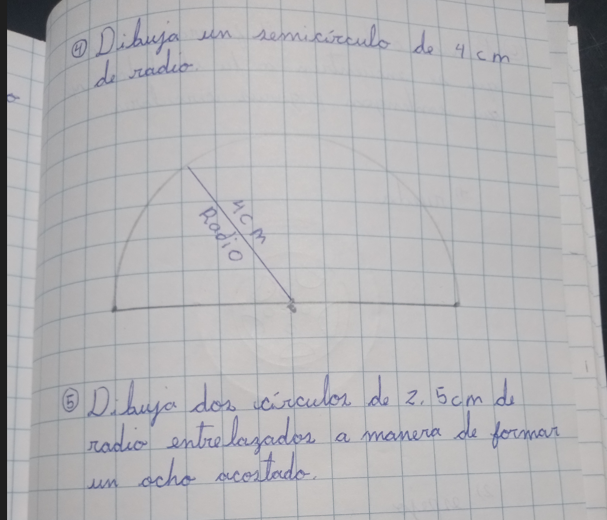 ④ Dibuja un semicírculo de 4 cm
de radio.
4cm
Radio
⑤ Dibuja dos círculos de 2.5cm de
radio entrelazados a manera de formar
un ocho acostado.